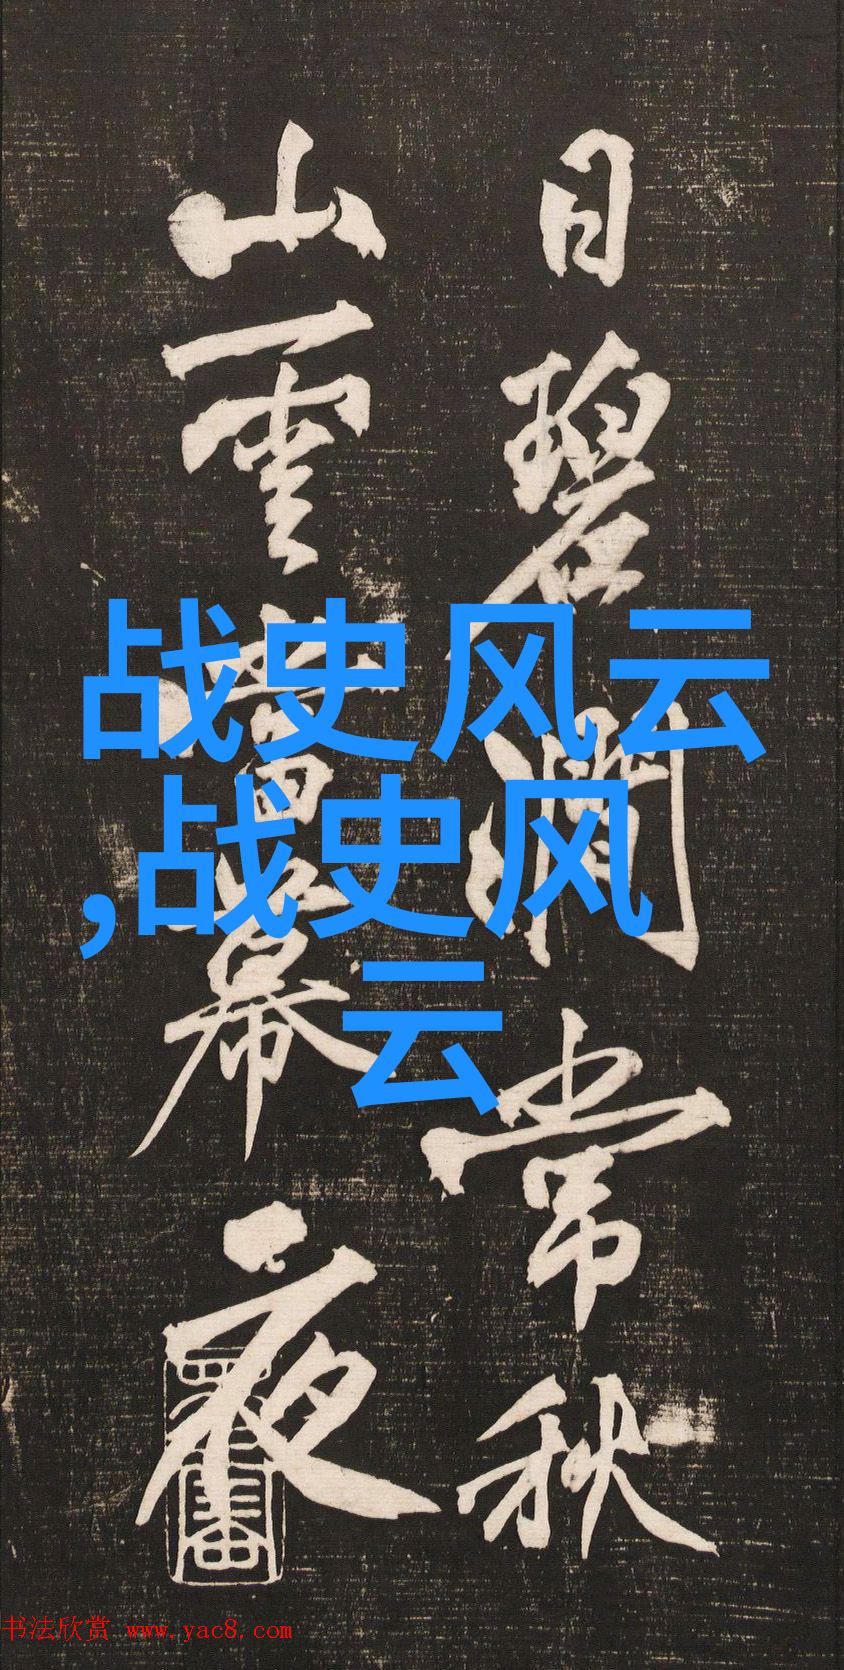 日碧澗常秋
山雲當幕夜
战史风云
,战史风
云
书法欣赏 www.yac8.com